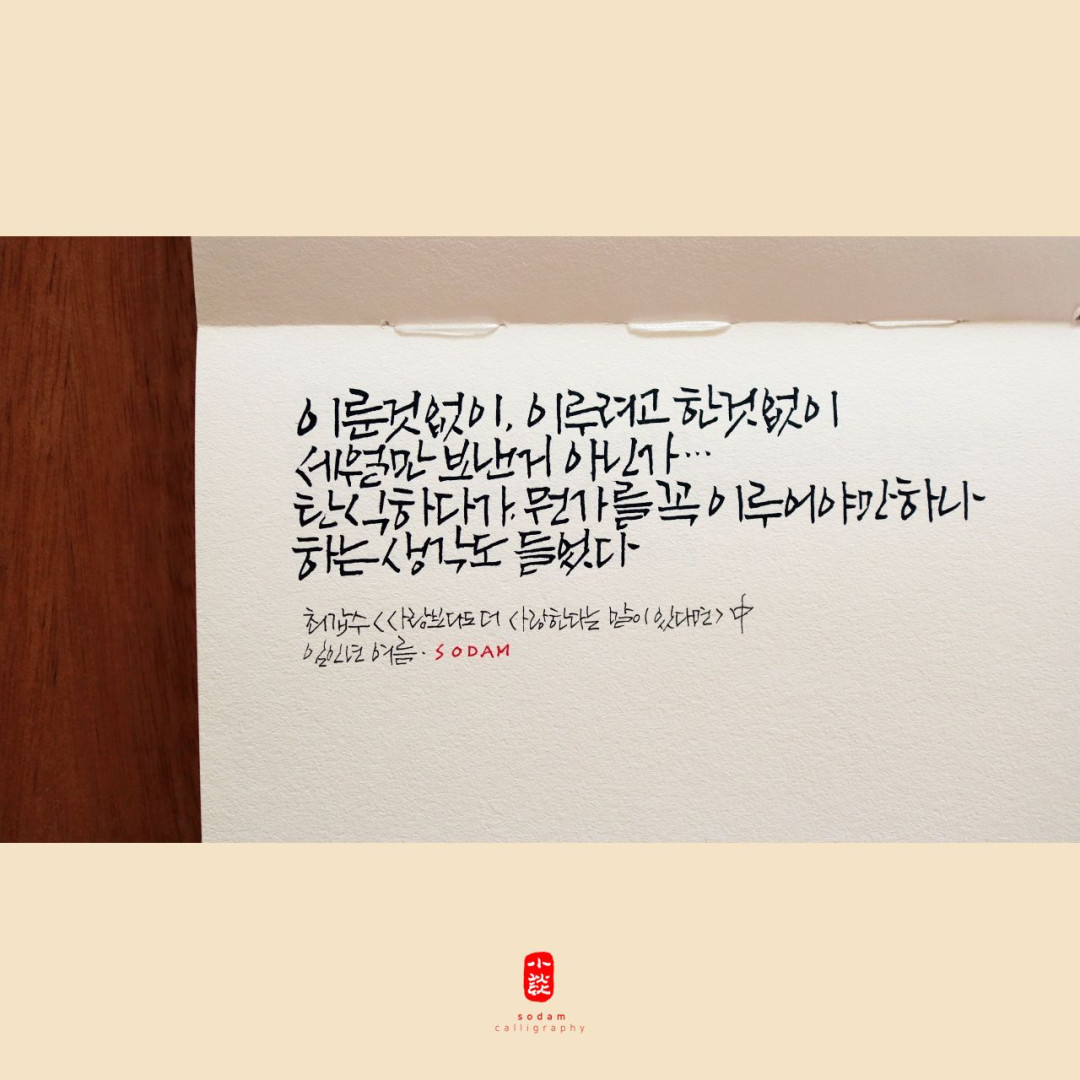 이룬것없이, 이루려고 한것없이
세월만 보낸거 아닌가...
탄식하다가, 뭔가를 꼭 이루어야만하나
하는 생각도 들었다
최갑수 <사랑보다도 더 사랑한다는 말이 있다면> 中
일인년 여름. SODAM
小談
sodam
calligraphy